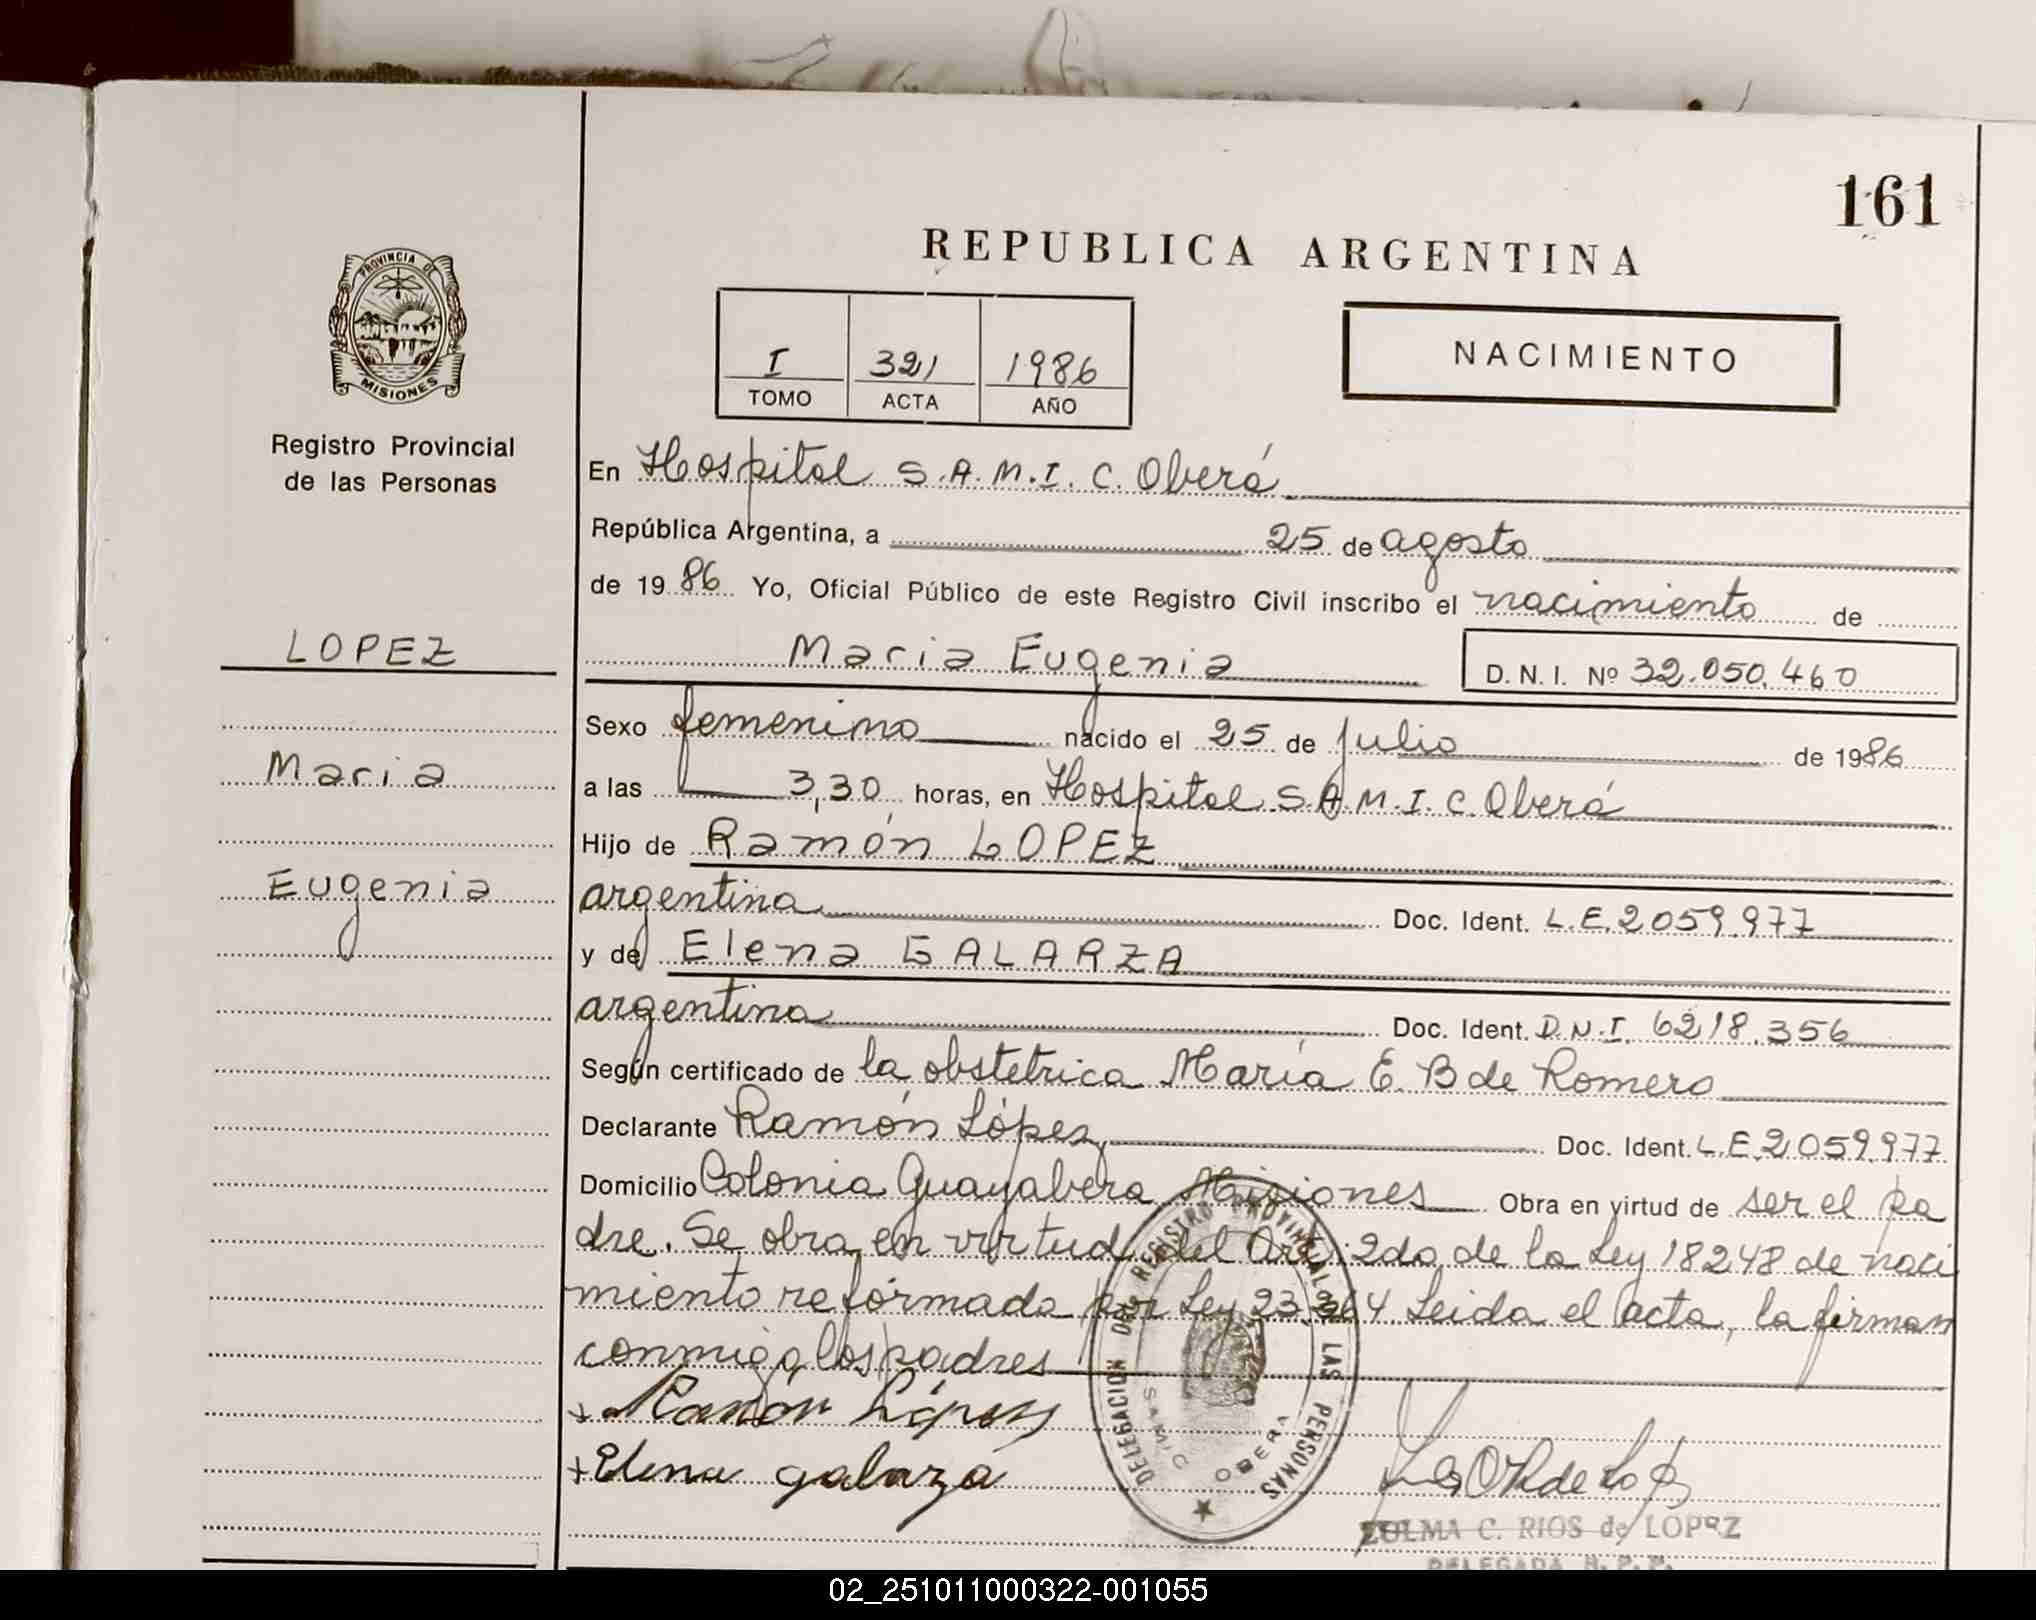 161
REPUBLICA ARGENTINA
PROVINCIA DE
MISIONES
Registro Provincial
de las Personas
I 321 1986
TOMO ACTA AÑO
NACIMIENTO
En Hospital S.A.M.I.C. Oberá
República Argentina, a 25 de agosto
de 1986 Yo, Oficial Público de este Registro Civil inscribo el nacimiento de
LOPEZ
Maria Eugenia D.N.I. Nº 32.050.460
Sexo femenino nacido el 25 de julio de 1986
Maria
a las 3,30 horas, en Hospital S.A.M.I.C. Oberá
Hijo de Ramón LOPEZ
Eugenia
argentina Doc. Ident. L.E. 2059.977
y de Elena GALARZA
argentina Doc. Ident. D.N.I. 6218.356
Según certificado de la obstetrica María E. B de Romero
Declarante Ramón López Doc. Ident. L.E. 2059.977
Domicilio Colonia Guayabera Misiones Obra en virtud de ser el pa
dre. Se obra en virtud del Art. 2do de la Ley 18248 de naci
miento reformada por Ley 23.264. Leida el acta, la firman
conmigo los padres
+ Ramón López
+ Elena galarza
DELEGACION DEL REGISTRO PROVINCIAL DE LAS PERSONAS
SAMIC OBERA
ZULMA C. RIOS de LOPEZ
DELEGADA R. P. P.
02_251011000322-001055